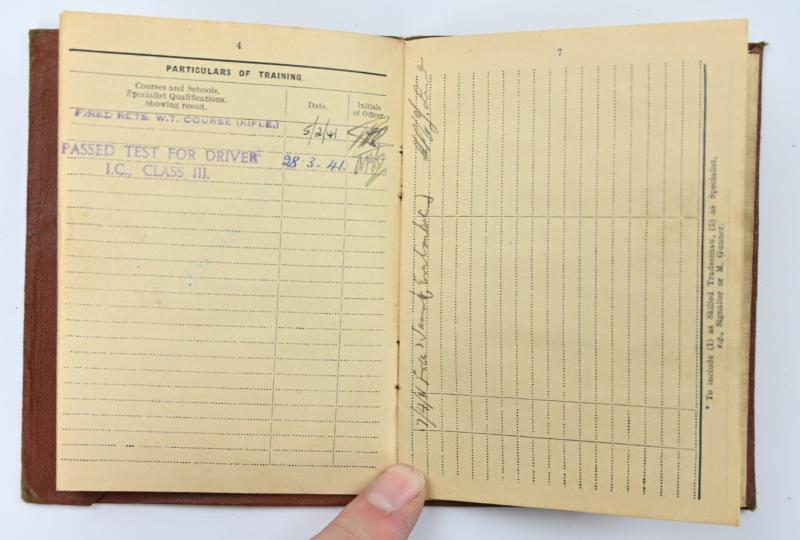 4
PARTICULARS OF TRAINING.
Courses and Schools,
Specialist Qualifications,
showing result.
Date.
Initials
of Officer.
FIRED RCTS. W.T. COURSE (RIFLE.) 5/2/41
PASSED TEST FOR DRIVER 28 3.41.
I.C., CLASS III.
7
7/4/41
* To include (1) as Skilled Tradesman, (2) as Specialist,
e.g., Signaller or M. Gunner.